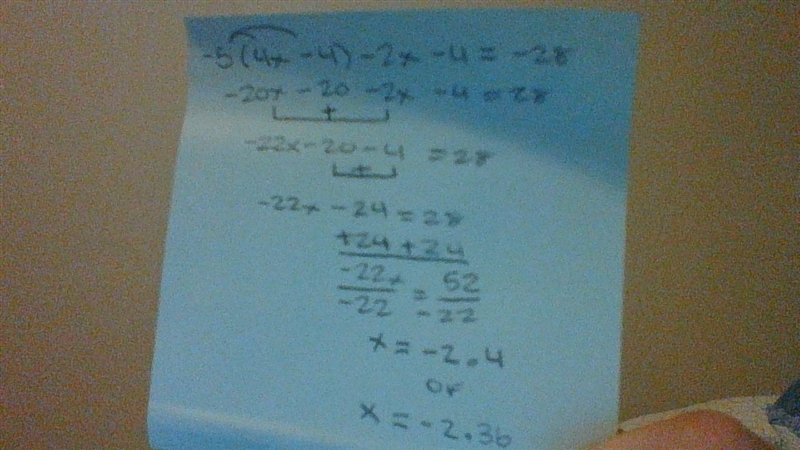 -5(4x -4) -2x -4 = -28
-20x -20 -2x -4 = 28
+
-22x -20 -4 = 28
+
-22x -24 = 28
+24 +24
-22x = 52
-22 -22
x = -2.4
or
x = -2.36